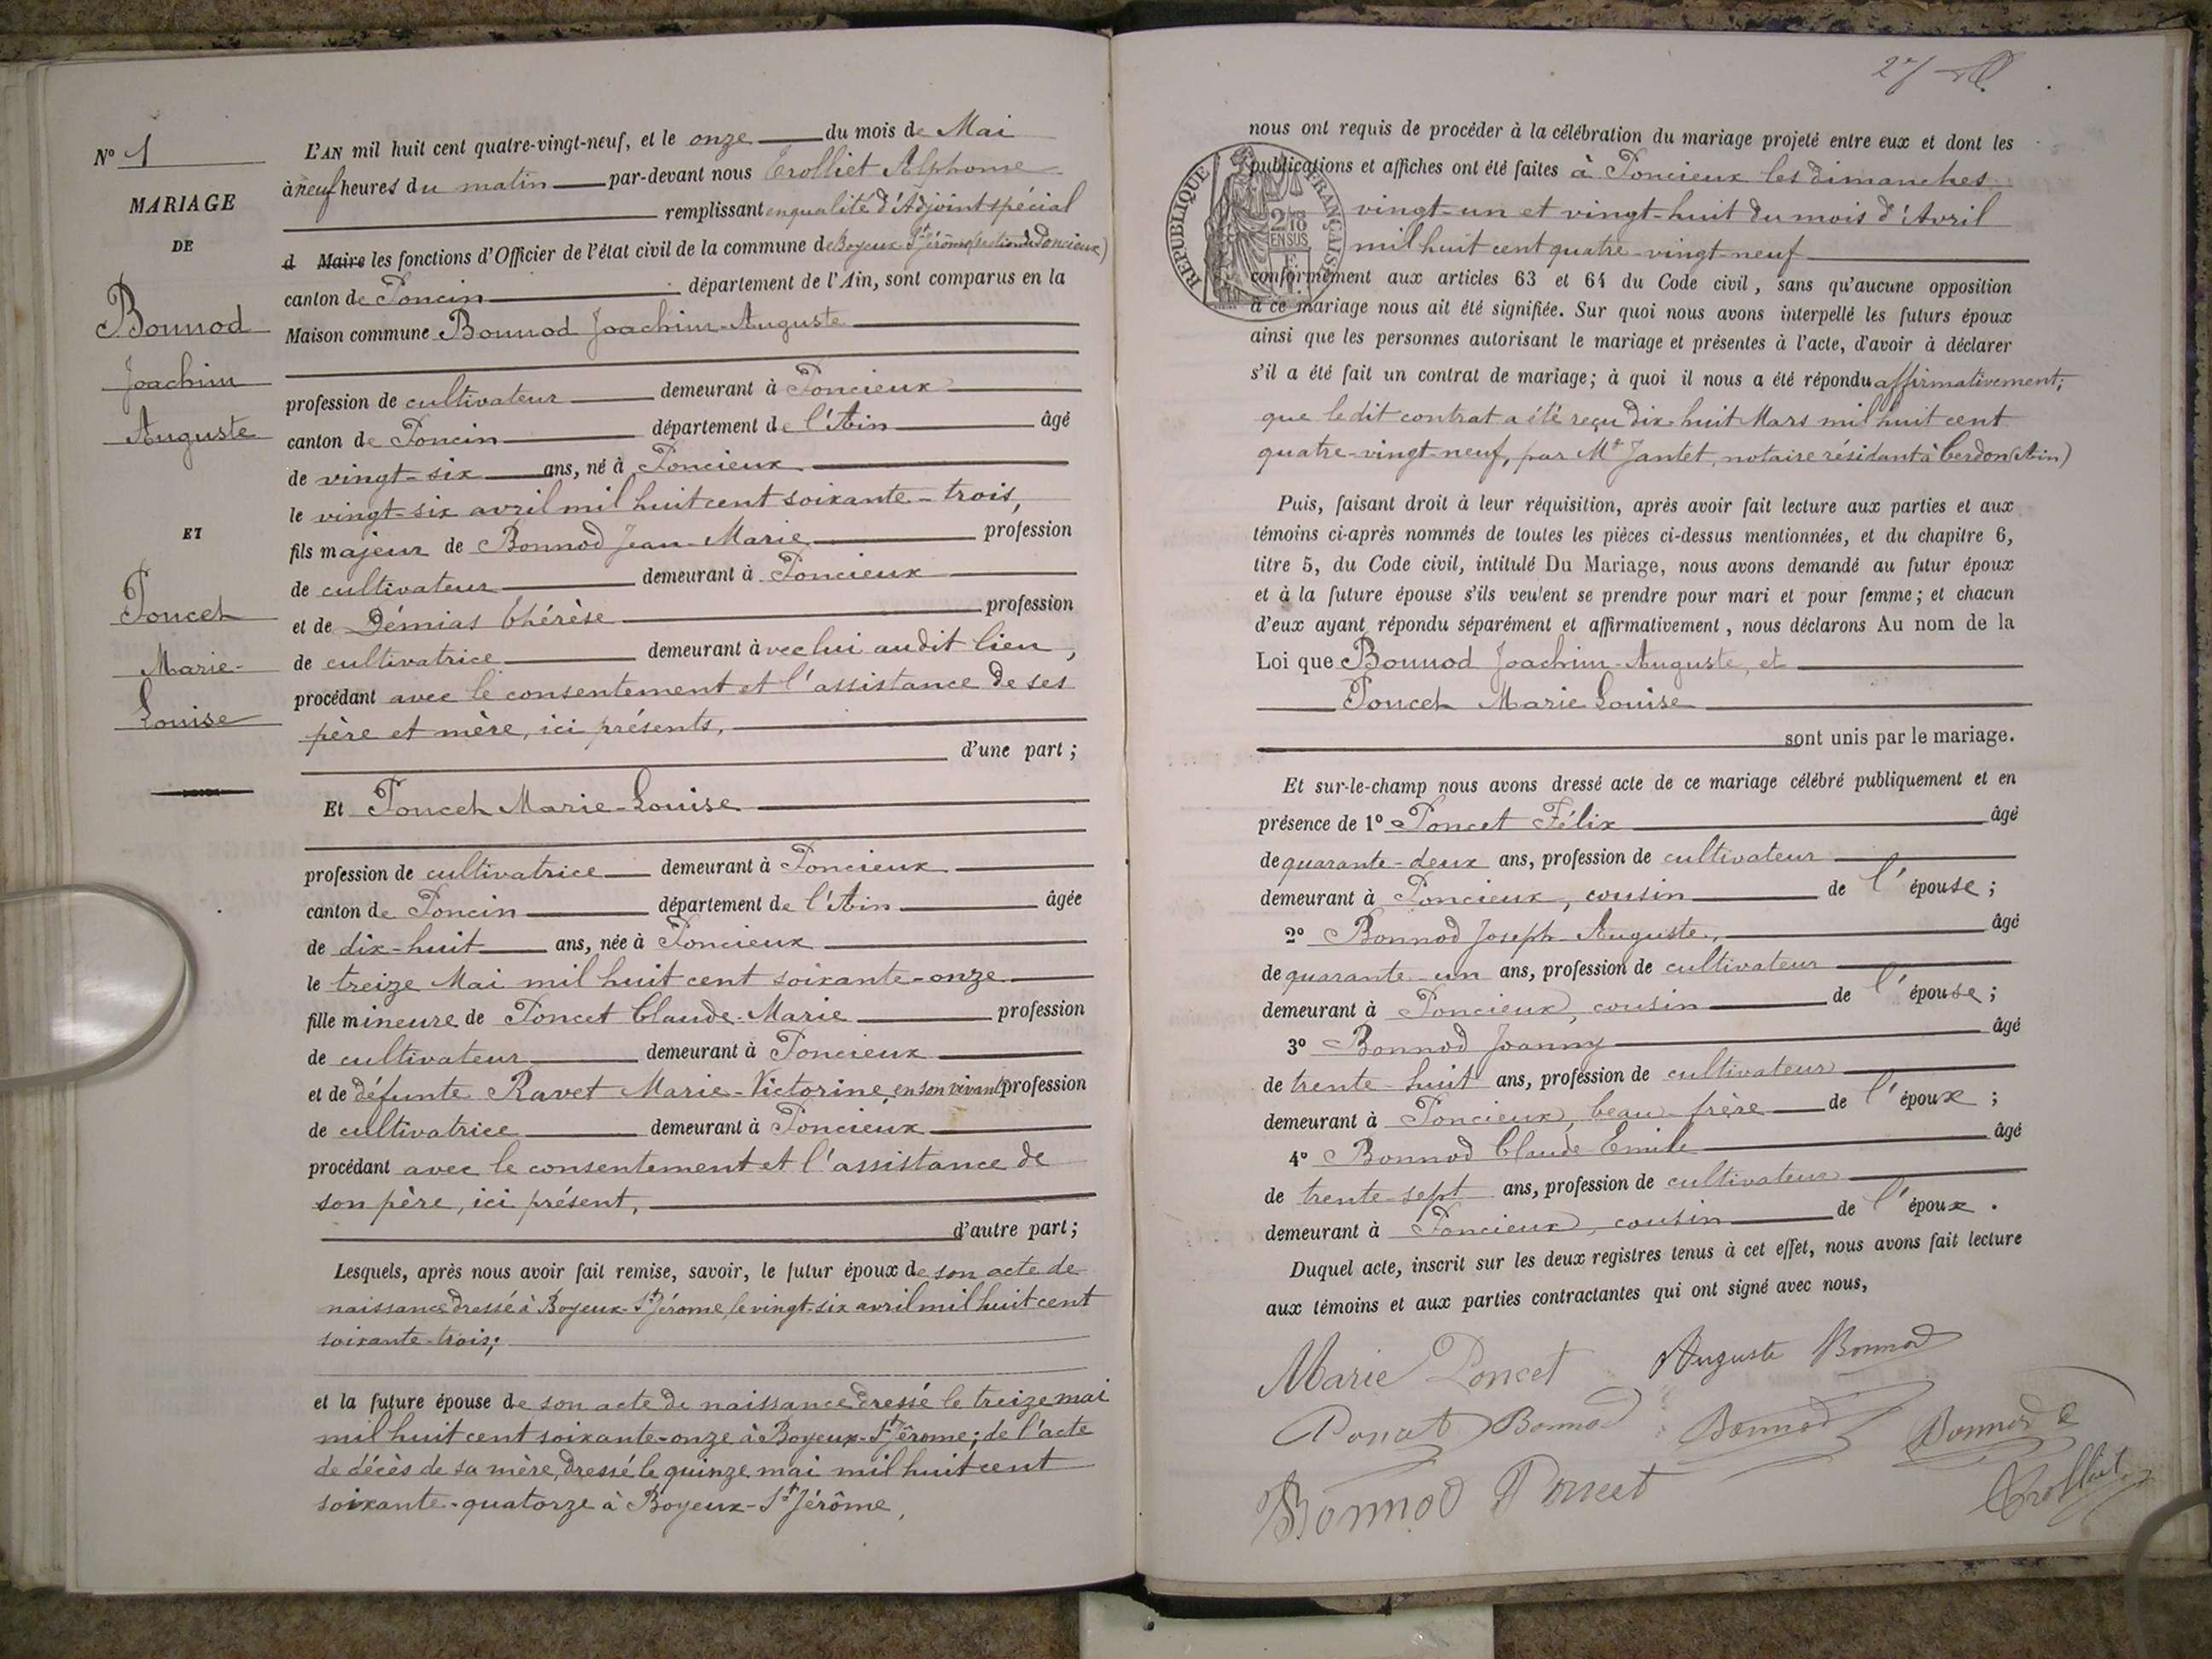 N° 1
MARIAGE
DE
Bonnod
Joachim
Auguste
ET
Poncet
Marie-
Louise
L'AN mil huit cent quatre-vingt-neuf, et le onze du mois de Mai
à neuf heures du matin par-devant nous Trolliet Alphonse
remplissant en qualité d'Adjoint spécial
d Maire les fonctions d'Officier de l'état civil de la commune de Boyeux-St Jérôme (section de Poncieux)
canton de Poncin département de l'Ain, sont comparus en la
Maison commune Bonnod Joachim-Auguste
profession de cultivateur demeurant à Poncieux
canton de Poncin département de l'Ain âgé
de vingt-six ans, né à Poncieux
le vingt-six avril mil huit cent soixante-trois,
fils majeur de Bonnod Jean-Marie profession
de cultivateur demeurant à Poncieux
et de Démias Thérèse profession
de cultivatrice demeurant avec lui audit lieu,
procédant avec le consentement et l'assistance de ses
père et mère, ici présents,
d'une part ;
Et Poncet Marie-Louise
profession de cultivatrice demeurant à Poncieux
canton de Poncin département de l'Ain âgée
de dix-huit ans, née à Poncieux
le treize Mai mil huit cent soixante-onze
fille mineure de Poncet Claude-Marie profession
de cultivateur demeurant à Poncieux
et de défunte Ravet Marie-Victorine, en son vivant profession
de cultivatrice demeurant à Poncieux
procédant avec le consentement et l'assistance de
son père, ici présent,
d'autre part ;
Lesquels, après nous avoir fait remise, savoir, le futur époux de son acte de
naissance dressé à Boyeux-St Jérome, le vingt-six avril mil huit cent
soixante-trois;
et la future épouse de son acte de naissance dressé le treize mai
mil huit cent soixante-onze à Boyeux-St Jérome; de l'acte
de décès de sa mère, dressé le quinze mai mil huit cent
soixante-quatorze à Boyeux-St Jérôme,
27
RÉPUBLIQUE FRANÇAISE
2/10
EN SUS
nous ont requis de procéder à la célébration du mariage projeté entre eux et dont les
publications et affiches ont été faites à Poncieux les dimanches
vingt-un et vingt-huit du mois d'Avril
mil huit cent quatre-vingt-neuf
conformément aux articles 63 et 64 du Code civil, sans qu'aucune opposition
à ce mariage nous ait été signifiée. Sur quoi nous avons interpellé les futurs époux
ainsi que les personnes autorisant le mariage et présentes à l'acte, d'avoir à déclarer
s'il a été fait un contrat de mariage; à quoi il nous a été répondu affirmativement;
que ledit contrat a été reçu dix-huit Mars mil huit cent
quatre-vingt-neuf, par Me Jantet, notaire résidant à Cerdon (Ain)
Puis, faisant droit à leur réquisition, après avoir fait lecture aux parties et aux
témoins ci-après nommés de toutes les pièces ci-dessus mentionnées, et du chapitre 6,
titre 5, du Code civil, intitulé Du Mariage, nous avons demandé au futur époux
et à la future épouse s'ils veulent se prendre pour mari et pour femme; et chacun
d'eux ayant répondu séparément et affirmativement, nous déclarons Au nom de la
Loi que Bonnod Joachim-Auguste, et
Poncet Marie Louise
sont unis par le mariage.
Et sur-le-champ nous avons dressé acte de ce mariage célébré publiquement et en
présence de 1° Poncet Félix âgé
de quarante-deux ans, profession de cultivateur
demeurant à Poncieux, cousin de l'épouse ;
2° Bonnod Joseph-Auguste, âgé
de quarante-un ans, profession de cultivateur
demeurant à Poncieux, cousin de l'épouse ;
3° Bonnod Joanny âgé
de trente-huit ans, profession de cultivateur
demeurant à Poncieux, beau-frère de l'époux ;
4° Bonnod Claude-Emile âgé
de trente-sept ans, profession de cultivateur
demeurant à Poncieux, cousin de l'époux.
Duquel acte, inscrit sur les deux registres tenus à cet effet, nous avons fait lecture
aux témoins et aux parties contractantes qui ont signé avec nous,
Marie Poncet Auguste Bonnod
Poncet Bonnod Bonnod Bonnod C
Bonnod Poncet Trolliet